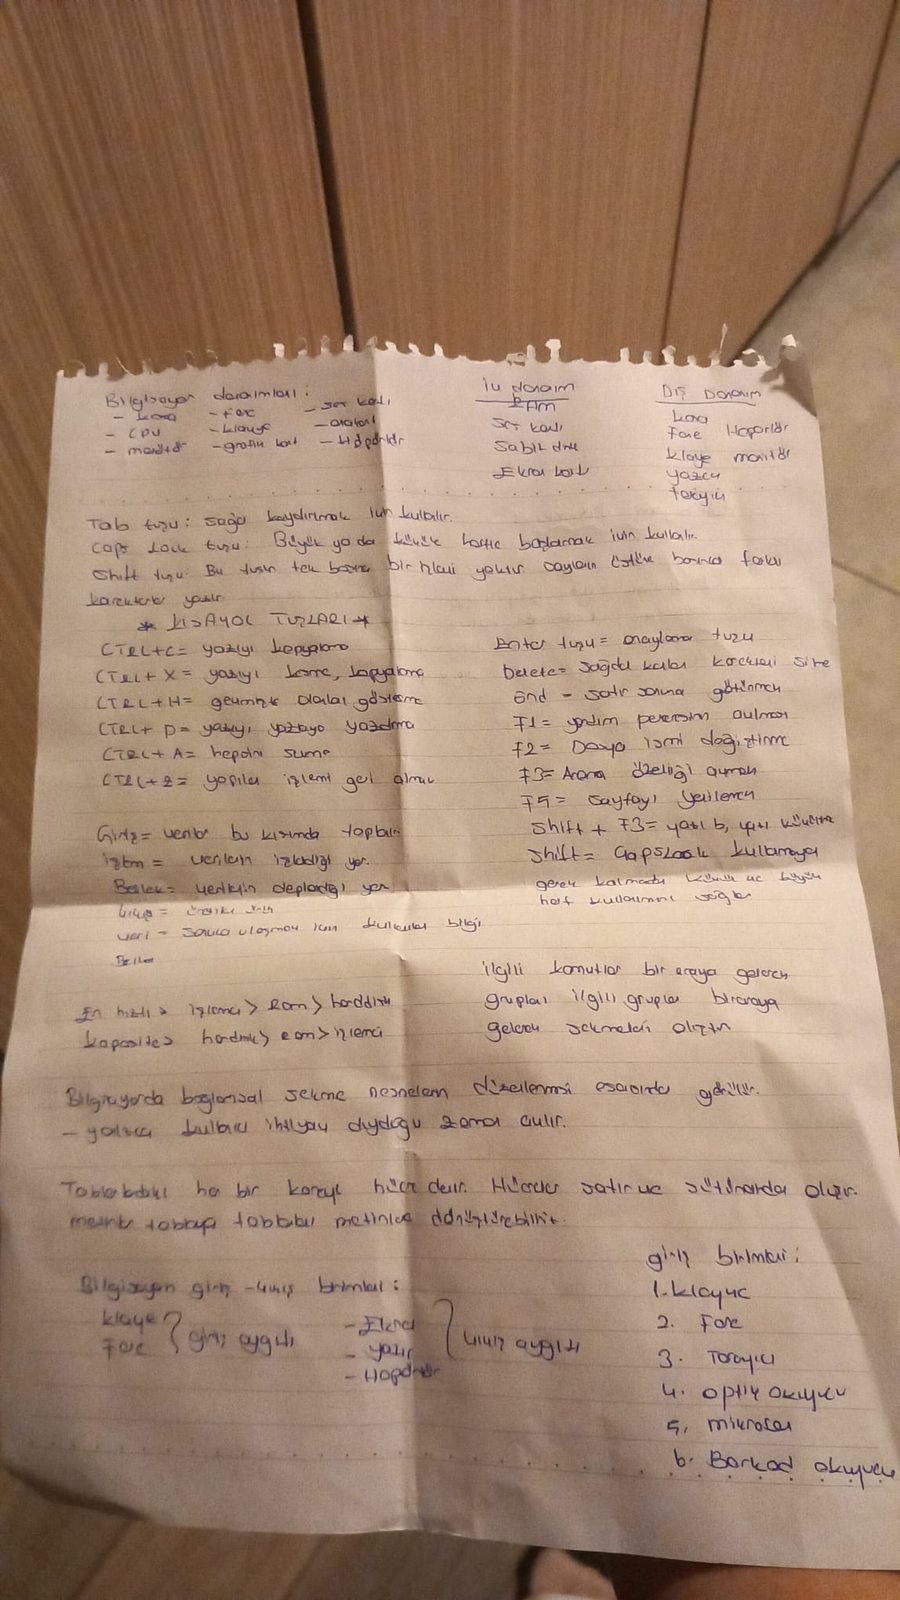 Bilgisayar donanımları:
- kasa - fare - ses kartı
- CPU - klavye - anakart
- monitör - grafik kart - Hoparlör
İç donanım
RAM
Ses kartı
Sabit disk
Ekran kartı
DIŞ Donanım
kasa
Fare Hoparlör
klavye monitör
yazıcı
tarayıcı
Tab tuşu: sağa kaydırmak için kullanılır.
Caps Lock tuşu: Büyük ya da küçük harfle başlamak için kullanılır.
Shift tuşu: Bu tuşun tek başına bir işlevi yoktur sayıların üstüne basınca farklı
karakterler yazılır
* KISAYOL TUŞLARI *
CTRL+C= yazıyı kopyalama
CTRL+X= yazıyı kesme, kopyalama
CTRL+H= geçmişte olanları gösterme
CTRL+P= yazıyı yazıcıya yazdırma
CTRL+A= hepsini seçme
CTRL+Z= yapılan işlemi geri alma
Enter tuşu= onaylama tuşu
Delete= sağda kalan karakteri silme
End = satır sonuna götürmek
F1= yardım penceresini açılması
F2= Dosya ismi değiştirme
F3= Arama özelliği açmak
F5= sayfayı yenilemek
Shift + F3= yazı b, yazı küçültme
Shift= CapsLock kullanmaya
gerek kalmadan küçük ve büyük
harf kullanımını sağlar
Giriş= veriler bu kısımda toplanır
işlem= verilerin işlendiği yer.
Bellek= verilerin depolandığı yer
Çıkış =
veri = sonuca ulaşmak için kullanılan bilgi
ilgili komutlar bir araya gelerek
grupları ilgili gruplar biraraya
gelerek sekmeleri oluştur
En hızlı > işlemci > ram > harddisk
kapasite > harddisk > ram > işlemci
Bilgisayarda bağlamsal sekme nesnelerin düzenlenmesi esnasında görülür.
- yalnızca kullanıcı ihtiyaç duyduğu zaman açılır.
Tablodaki her bir kareye hücre denir. Hücreler satır ve sütunlardan oluşur.
metinler tabloya tablolar metinlere dönüştürebilir.
Bilgisayarın giriş - çıkış birimleri:
klavye
Fare
} giriş aygıtı
- Ekran
- yazıcı
- Hoparlör
} çıkış aygıtı
giriş birimleri:
1. klavye
2. Fare
3. Tarayıcı
4. optik okuyucu
5. mikrofon
6. Barkod okuyucu